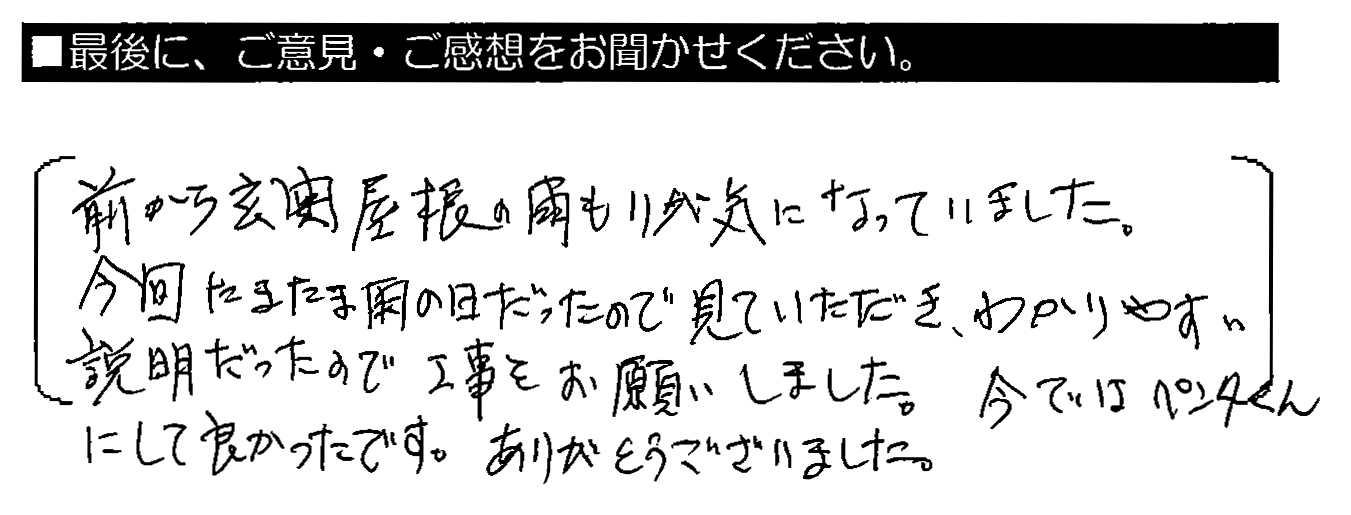 ■最後に、ご意見・ご感想をお聞かせください。
前から玄関屋根の雨もりが気になっていました。
今回たまたま雨の日だったので見ていただき、わかりやすい
説明だったので工事をお願いしました。今ではペンタくん
にして良かったです。ありがとうございました。